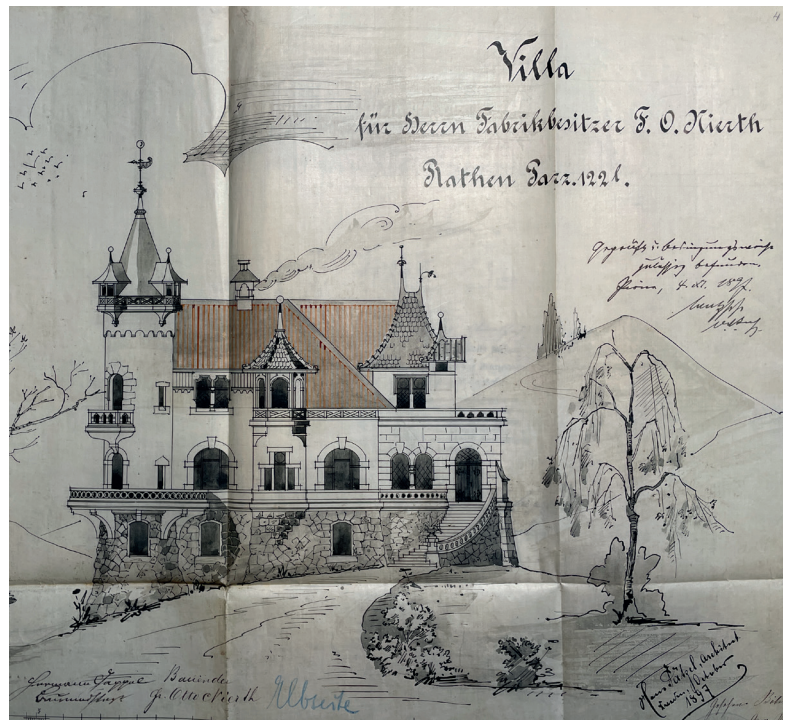 4
Villa
für Herrn Fabrikbesitzer F. O. Nierth
Rathen Parz. 122 l.
Geprüft u. bedingungsweise
zulässig befunden.
Pirna, 4. XI. 1897.
Hermann Bauinder
Baumeister Otto Nierth
Elbseite
Hans Architekt
October
1897